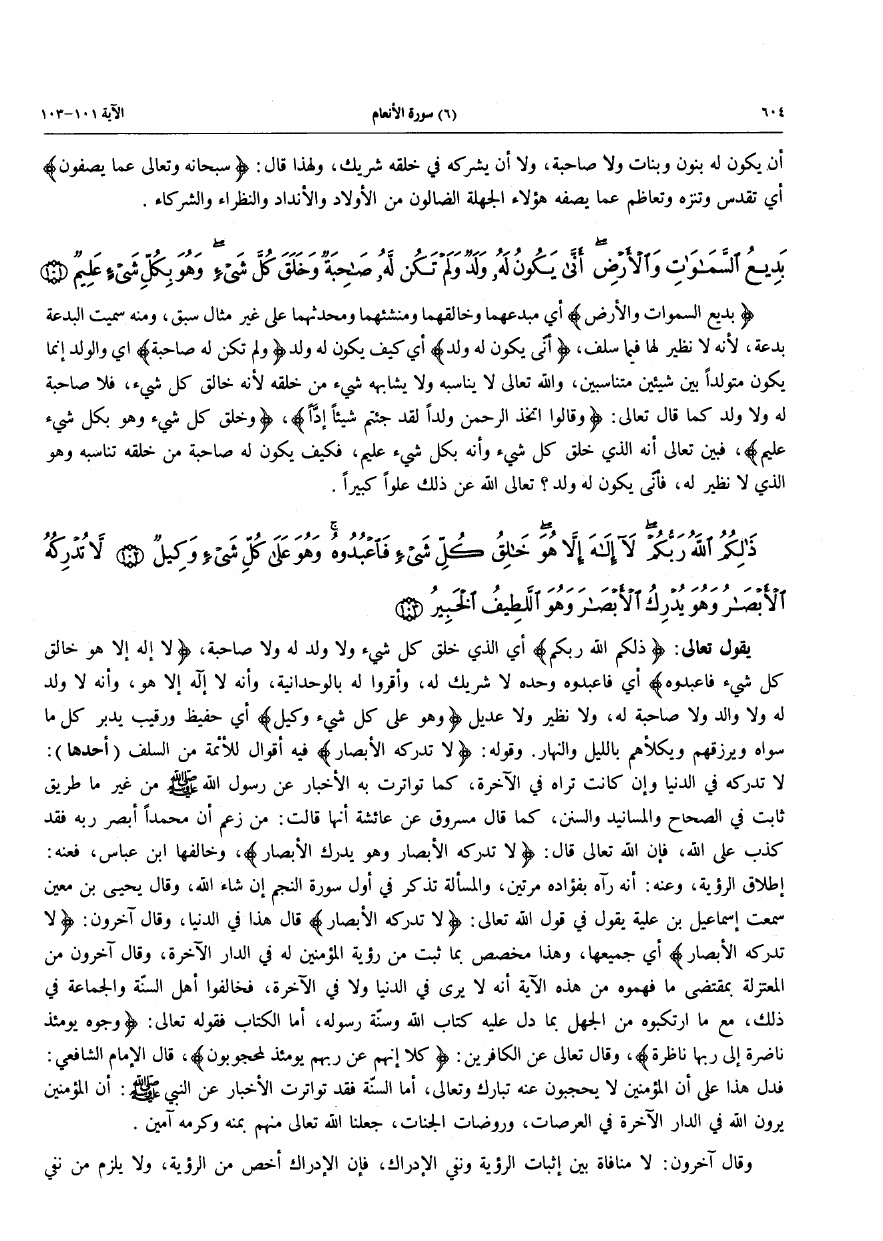 ٦٠٤ (٦) سورة الأنعام الآية ١٠١-١٠٣
أن يكون له بنون وبنات ولا صاحبة، ولا أن يشركه في خلقه شريك، ولهذا قال: ﴿ سبحانه وتعالى عما يصفون ﴾
أي تقدس وتنزه وتعاظم عما يصفه هؤلاء الجهلة الضالون من الأولاد والأنداد والنظراء والشركاء .
بَدِيعُ ٱلسَّمَـٰوَٰتِ وَٱلْأَرْضِۖ أَنَّىٰ يَكُونُ لَهُۥ وَلَدٌ وَلَمْ تَكُن لَّهُۥ صَـٰحِبَةٌۖ وَخَلَقَ كُلَّ شَىْءٍۖ وَهُوَ بِكُلِّ شَىْءٍ عَلِيمٌ ﴿١٠١﴾
﴿ بديع السموات والأرض ﴾ أي مبدعهما وخالقهما ومنشئهما ومحدثهما على غير مثال سبق، ومنه سميت البدعة
بدعة، لأنه لا نظير لها فيما سلف، ﴿ أنّى يكون له ولد ﴾ أي كيف يكون له ولد ﴿ ولم تكن له صاحبة ﴾ اي والولد إنما
يكون متولداً بين شيئين متناسبين، والله تعالى لا يناسبه ولا يشابهه شيء من خلقه لأنه خالق كل شيء، فلا صاحبة
له ولا ولد كما قال تعالى: ﴿ وقالوا اتخذ الرحمن ولداً لقد جئتم شيئاً إدّاً ﴾، ﴿ وخلق كل شيء وهو بكل شيء
عليم ﴾، فبين تعالى أنه الذي خلق كل شيء وأنه بكل شيء عليم، فكيف يكون له صاحبة من خلقه تناسبه وهو
الذي لا نظير له، فأنّى يكون له ولد ؟ تعالى الله عن ذلك علواً كبيراً .
ذَٰلِكُمُ ٱللَّهُ رَبُّكُمْۖ لَآ إِلَـٰهَ إِلَّا هُوَۖ خَـٰلِقُ كُلِّ شَىْءٍ فَٱعْبُدُوهُۚ وَهُوَ عَلَىٰ كُلِّ شَىْءٍ وَكِيلٌ ﴿١٠٢﴾ لَّا تُدْرِكُهُ
ٱلْأَبْصَـٰرُ وَهُوَ يُدْرِكُ ٱلْأَبْصَـٰرَ وَهُوَ ٱللَّطِيفُ ٱلْخَبِيرُ ﴿١٠٣﴾
يقول تعالى: ﴿ ذلكم الله ربكم ﴾ أي الذي خلق كل شيء ولا ولد له ولا صاحبة، ﴿ لا إله إلا هو خالق
كل شيء فاعبدوه ﴾ أي فاعبدوه وحده لا شريك له، وأقروا له بالوحدانية، وأنه لا إلّه إلا هو، وأنه لا ولد
له ولا والد ولا صاحبة له، ولا نظير ولا عديل ﴿ وهو على كل شيء وكيل ﴾ أي حفيظ ورقيب يدبر كل ما
سواه ويرزقهم ويكلأهم بالليل والنهار. وقوله: ﴿ لا تدركه الأبصار ﴾ فيه أقوال للأئمة من السلف (أحدها):
لا تدركه في الدنيا وإن كانت تراه في الآخرة، كما تواترت به الأخبار عن رسول الله ﷺ من غير ما طريق
ثابت في الصحاح والمسانيد والسنن، كما قال مسروق عن عائشة أنها قالت: من زعم أن محمداً أبصر ربه فقد
كذب على الله، فإن الله تعالى قال: ﴿ لا تدركه الأبصار وهو يدرك الأبصار ﴾، وخالفها ابن عباس، فعنه:
إطلاق الرؤية، وعنه: أنه رآه بفؤاده مرتين، والمسألة تذكر في أول سورة النجم إن شاء الله، وقال يحيـى بن معين
سمعت إسماعيل بن علية يقول في قول الله تعالى: ﴿ لا تدركه الأبصار ﴾ قال هذا في الدنيا، وقال آخرون: ﴿ لا
تدركه الأبصار ﴾ أي جميعها، وهذا مخصص بما ثبت من رؤية المؤمنين له في الدار الآخرة، وقال آخرون من
المعتزلة بمقتضى ما فهموه من هذه الآية أنه لا يرى في الدنيا ولا في الآخرة، فخالفوا أهل السنّة والجماعة في
ذلك، مع ما ارتكبوه من الجهل بما دل عليه كتاب الله وسنّة رسوله، أما الكتاب فقوله تعالى: ﴿ وجوه يومئذ
ناضرة إلى ربها ناظرة ﴾، وقال تعالى عن الكافرين: ﴿ كلا إنهم عن ربهم يومئذ لمحجوبون ﴾، قال الإمام الشافعي:
فدل هذا على أن المؤمنين لا يحجبون عنه تبارك وتعالى، أما السنّة فقد تواترت الأخبار عن النبي ﷺ: أن المؤمنين
يرون الله في الدار الآخرة في العرصات، وروضات الجنات، جعلنا الله تعالى منهم بمنه وكرمه آمين .
وقال آخرون: لا منافاة بين إثبات الرؤية ونفي الإدراك، فإن الإدراك أخص من الرؤية، ولا يلزم من نفي